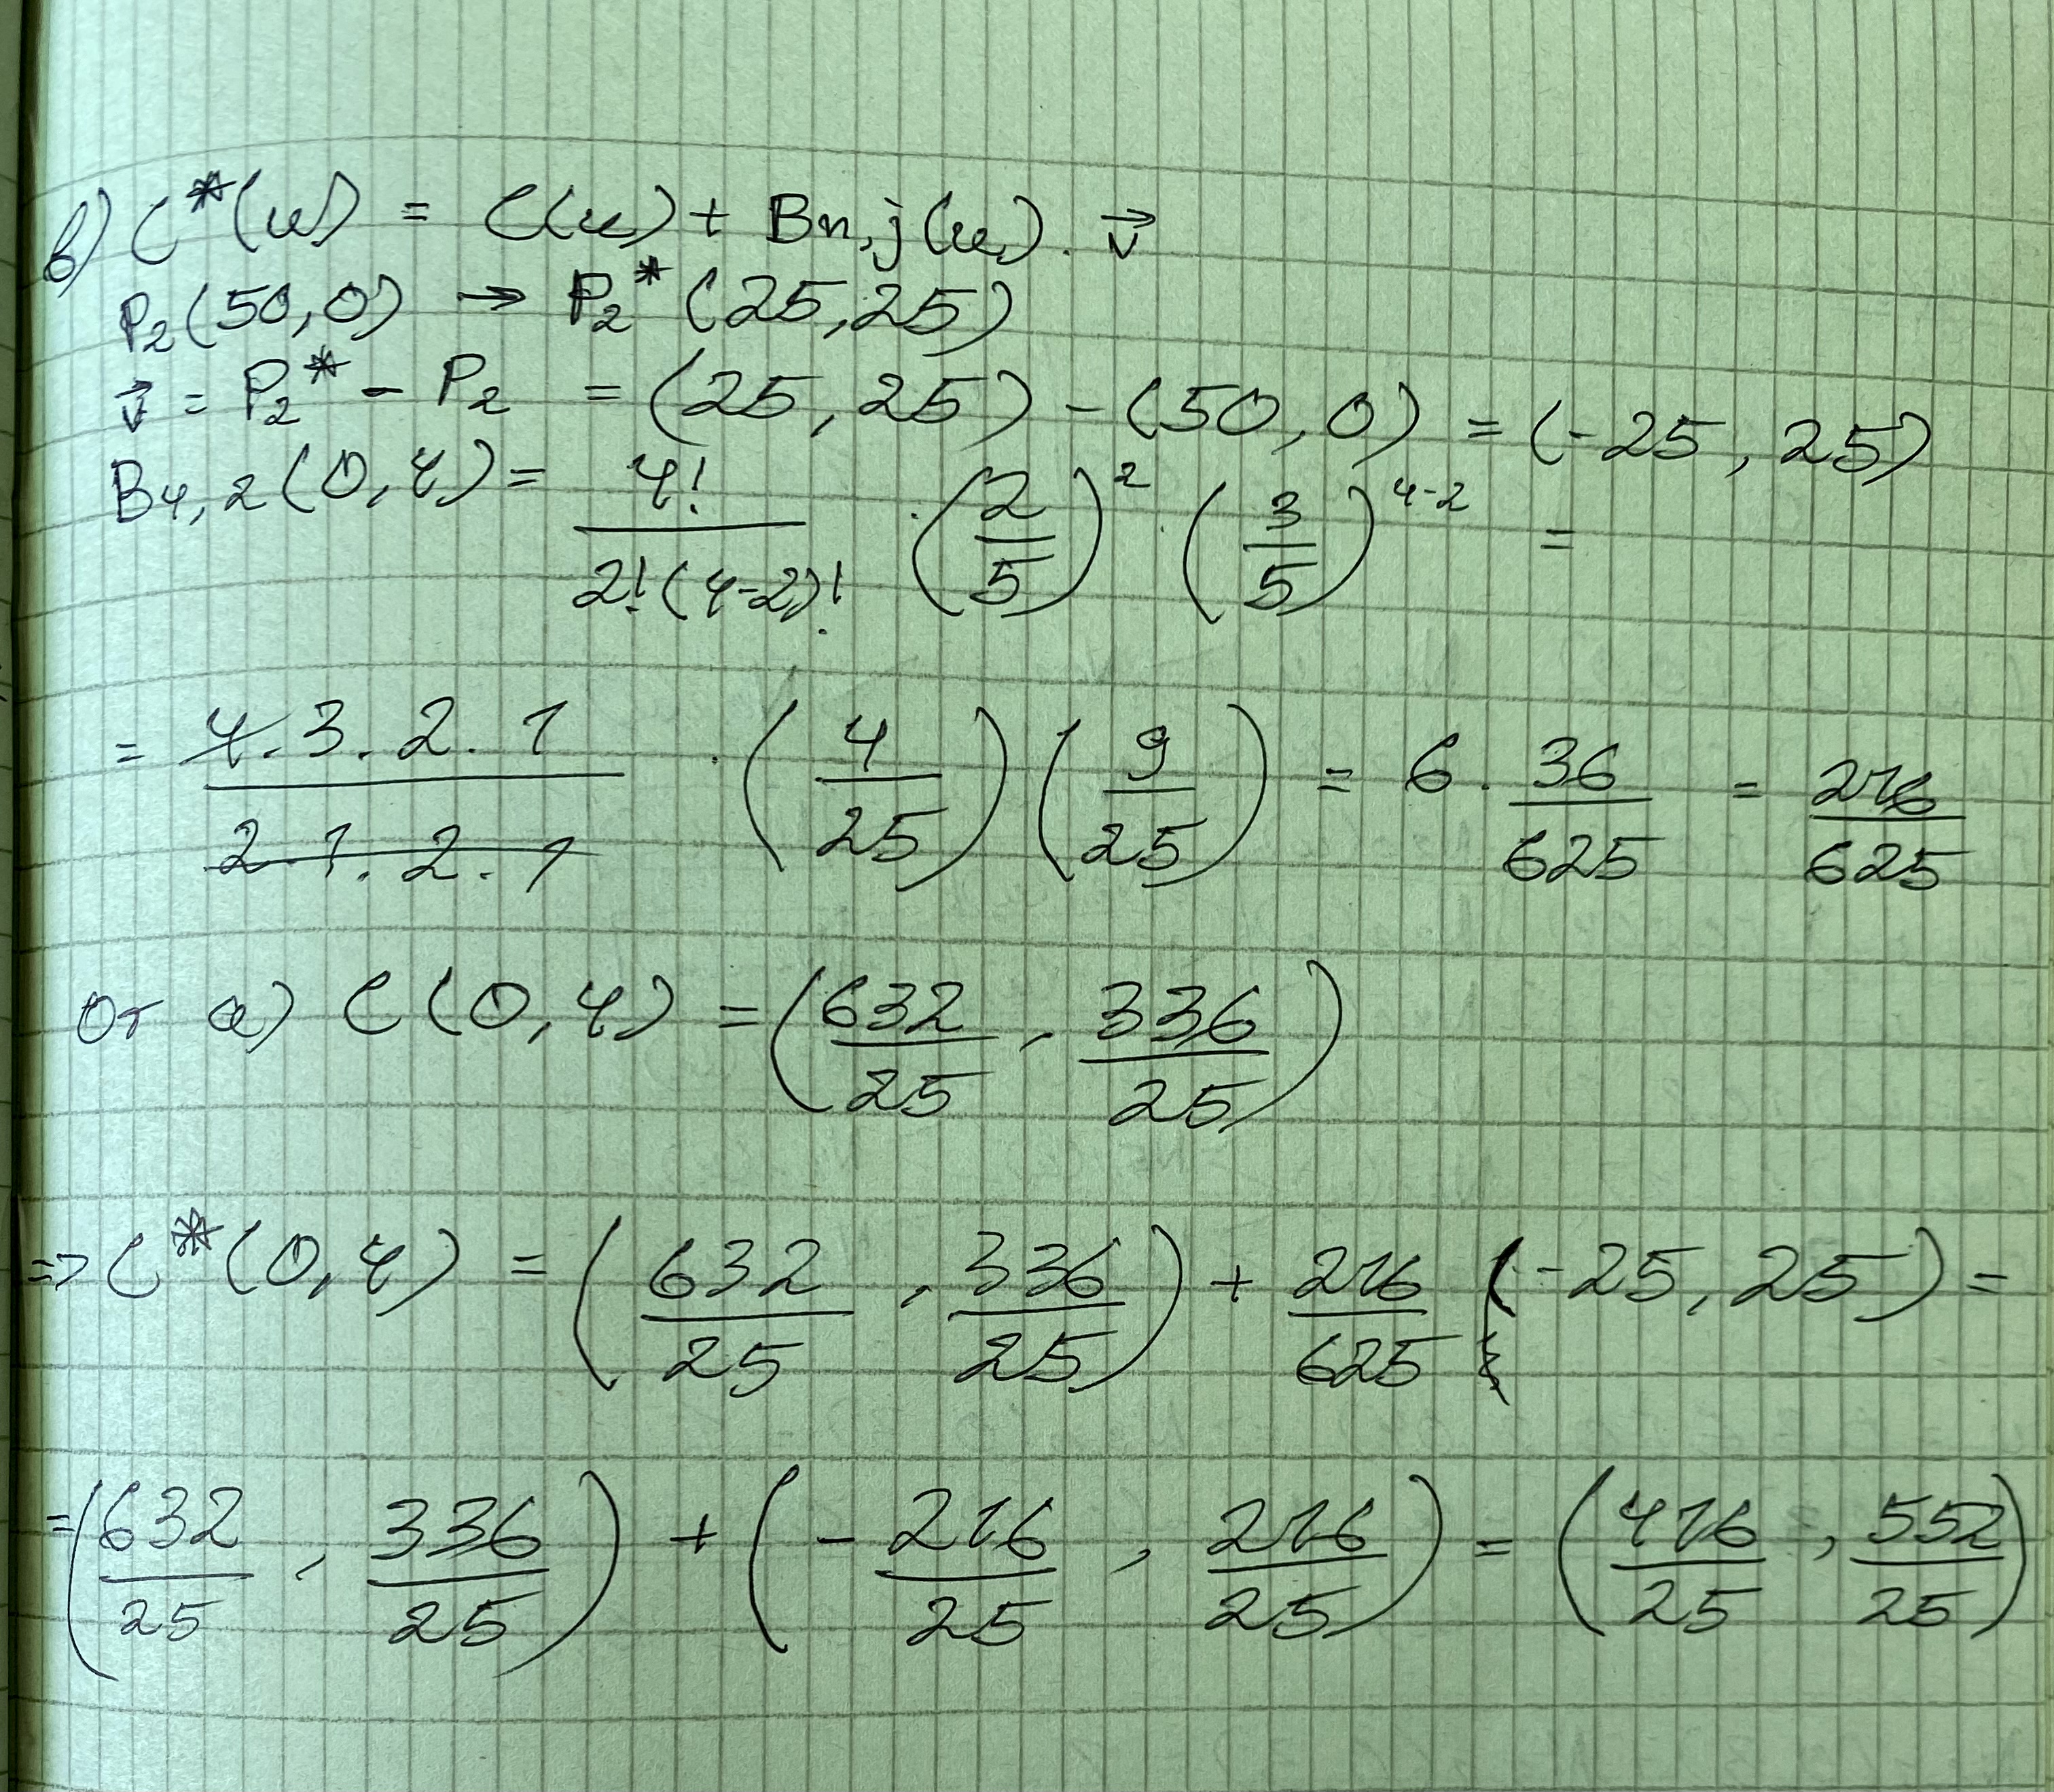 в) C*(u) = C(u) + Bn,j(u). v⃗
P₂(50,0) → P₂*(25,25)
v⃗ = P₂* - P₂ = (25,25) - (50,0) = (-25,25)
B₄,₂(0,4) = 4!/(2!(4-2)!) . (2/5)² . (3/5)⁴⁻² =
= 4.3.2.1/(2.1.2.1) . (4/25)(9/25) = 6 . 36/625 = 216/625
От а) C(0,4) = (632/25, 336/25)
=> C*(0,4) = (632/25, 336/25) + 216/625 (-25,25) =
= (632/25, 336/25) + (-216/25, 216/25) = (416/25, 552/25)